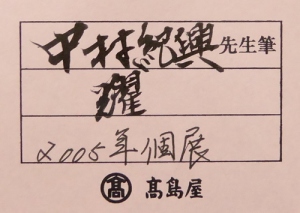 中村紀興 先生筆
躍
2005年個展
髙 髙島屋